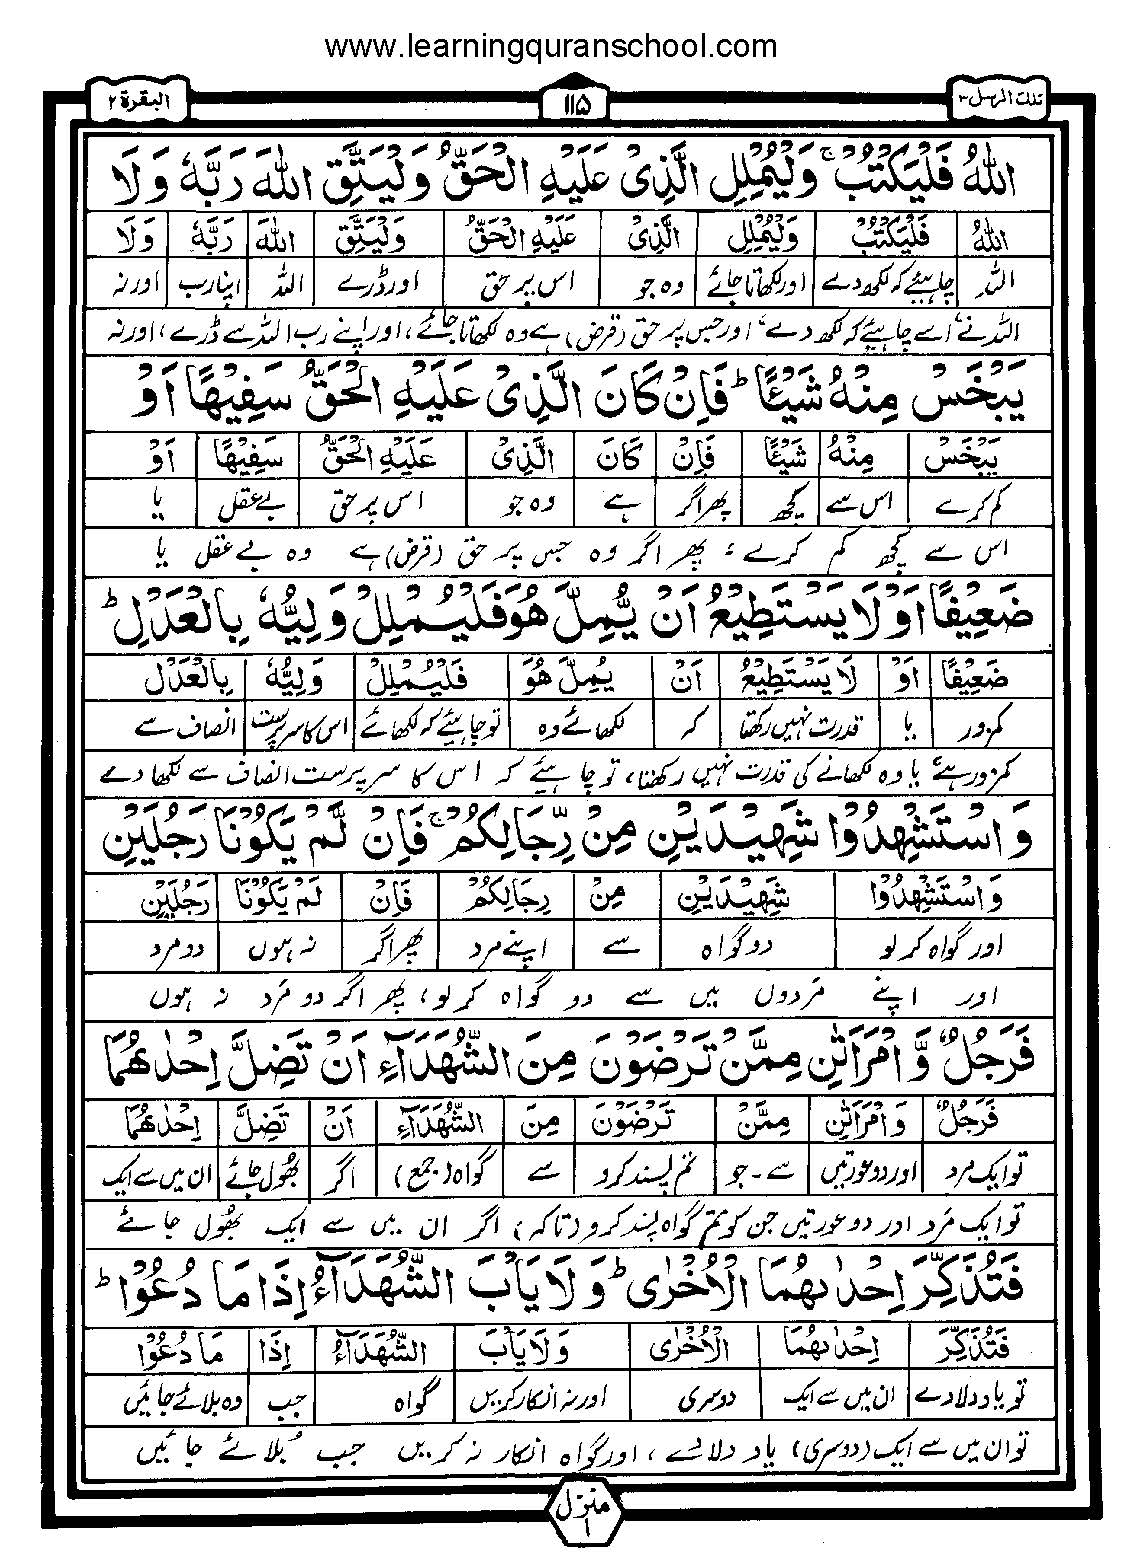 www.learningquranschool.com
تلك الرسل ۳ ۱۱۵ البقرة ۲
اللّٰهُ فَلْيَكْتُبْ ۚ وَلْيُمْلِلِ الَّذِیْ عَلَيْهِ الْحَقُّ وَلْيَتَّقِ اللّٰهَ رَبَّهٗ وَلَا
اللّٰهُ فَلْيَكْتُبْ وَلْيُمْلِلِ الَّذِیْ عَلَيْهِ الْحَقُّ وَلْيَتَّقِ اللّٰهَ رَبَّهٗ وَلَا
اللہ چاہیئے کہ لکھ دے اور لکھاتا جائے وہ جو اس پر حق اور ڈرے اللہ اپنا رب اور نہ
اللہ نے، اسے چاہیئے کہ لکھ دے، اور جس پر حق (قرض) ہے وہ لکھاتا جائے، اور اپنے رب اللہ سے ڈرے، اور نہ
يَبْخَسْ مِنْهُ شَيْـًٔا ؕ فَاِنْ كَانَ الَّذِیْ عَلَيْهِ الْحَقُّ سَفِيْهًا اَوْ
يَبْخَسْ مِنْهُ شَيْـًٔا فَاِنْ كَانَ الَّذِیْ عَلَيْهِ الْحَقُّ سَفِيْهًا اَوْ
کم کرے اس سے کچھ پھر اگر ہے وہ جو اس پر حق بے عقل یا
اس سے کچھ کم کرے، پھر اگر وہ جس پر حق (قرض) ہے وہ بے عقل یا
ضَعِيْفًا اَوْ لَا يَسْتَطِيْعُ اَنْ يُّمِلَّ هُوَ فَلْيُمْلِلْ وَلِيُّهٗ بِالْعَدْلِ ؕ
ضَعِيْفًا اَوْ لَا يَسْتَطِيْعُ اَنْ يُمِلَّ هُوَ فَلْيُمْلِلْ وَلِيُّهٗ بِالْعَدْلِ
کمزور یا قدرت نہیں رکھتا کہ لکھائے وہ تو چاہیئے کہ لکھائے اس کا سرپرست انصاف سے
کمزور ہے، یا وہ لکھانے کی قدرت نہیں رکھتا، تو چاہیئے کہ اس کا سرپرست انصاف سے لکھا دے
وَ اسْتَشْهِدُوْا شَهِيْدَيْنِ مِنْ رِّجَالِكُمْ ۚ فَاِنْ لَّمْ يَكُوْنَا رَجُلَيْنِ
وَ اسْتَشْهِدُوْا شَهِيْدَيْنِ مِنْ رِجَالِكُمْ فَاِنْ لَمْ يَكُوْنَا رَجُلَيْنِ
اور گواہ کر لو دو گواہ سے اپنے مرد پھر اگر نہ ہوں دو مرد
اور اپنے مردوں میں سے دو گواہ کر لو، پھر اگر دو مرد نہ ہوں
فَرَجُلٌ وَّ امْرَاَتٰنِ مِمَّنْ تَرْضَوْنَ مِنَ الشُّهَدَآءِ اَنْ تَضِلَّ اِحْدٰىهُمَا
فَرَجُلٌ وَ امْرَاَتٰنِ مِمَّنْ تَرْضَوْنَ مِنَ الشُّهَدَآءِ اَنْ تَضِلَّ اِحْدٰىهُمَا
تو ایک مرد اور دو عورتیں سے ۔ جو تم پسند کرو سے گواہ (جمع) اگر بھول جائے ان میں سے ایک
تو ایک مرد اور دو عورتیں جن کو تم گواہ پسند کرو (تاکہ) اگر ان میں سے ایک بھول جائے
فَتُذَكِّرَ اِحْدٰىهُمَا الْاُخْرٰی ؕ وَلَا يَاْبَ الشُّهَدَآءُ اِذَا مَا دُعُوْا ؕ
فَتُذَكِّرَ اِحْدٰىهُمَا الْاُخْرٰی وَلَا يَاْبَ الشُّهَدَآءُ اِذَا مَا دُعُوْا
تو یاد دلا دے ان میں سے ایک دوسری اور نہ انکار کریں گواہ جب وہ بلائے جائیں
تو ان میں سے ایک (دوسری) یاد دلائے، اور گواہ انکار نہ کریں جب بلائے جائیں
منزل ۱